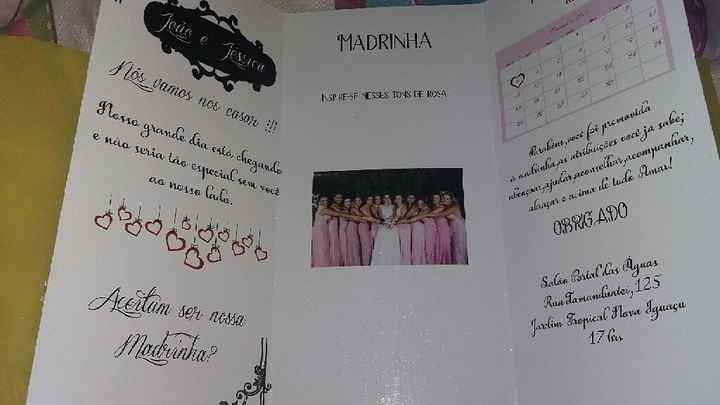 João e Jéssica
Nós vamos nos casar !!!
Nosso grande dia está chegando
e não seria tão especial sem você
ao nosso lado.
Aceitam ser nossa
Madrinha?
MADRINHA
INSPIRE-SE NESSES TONS DE ROSA
Parabéns, você foi promovida
a madrinha, as atribuições você já sabe;
abençoar, ajudar, aconselhar, acompanhar,
abraçar e acima de tudo Amar!
OBRIGADO
Salão Portal das Águas
Rua Tamanduateí, 125
Jardim Tropical Nova Iguaçu
17 hrs